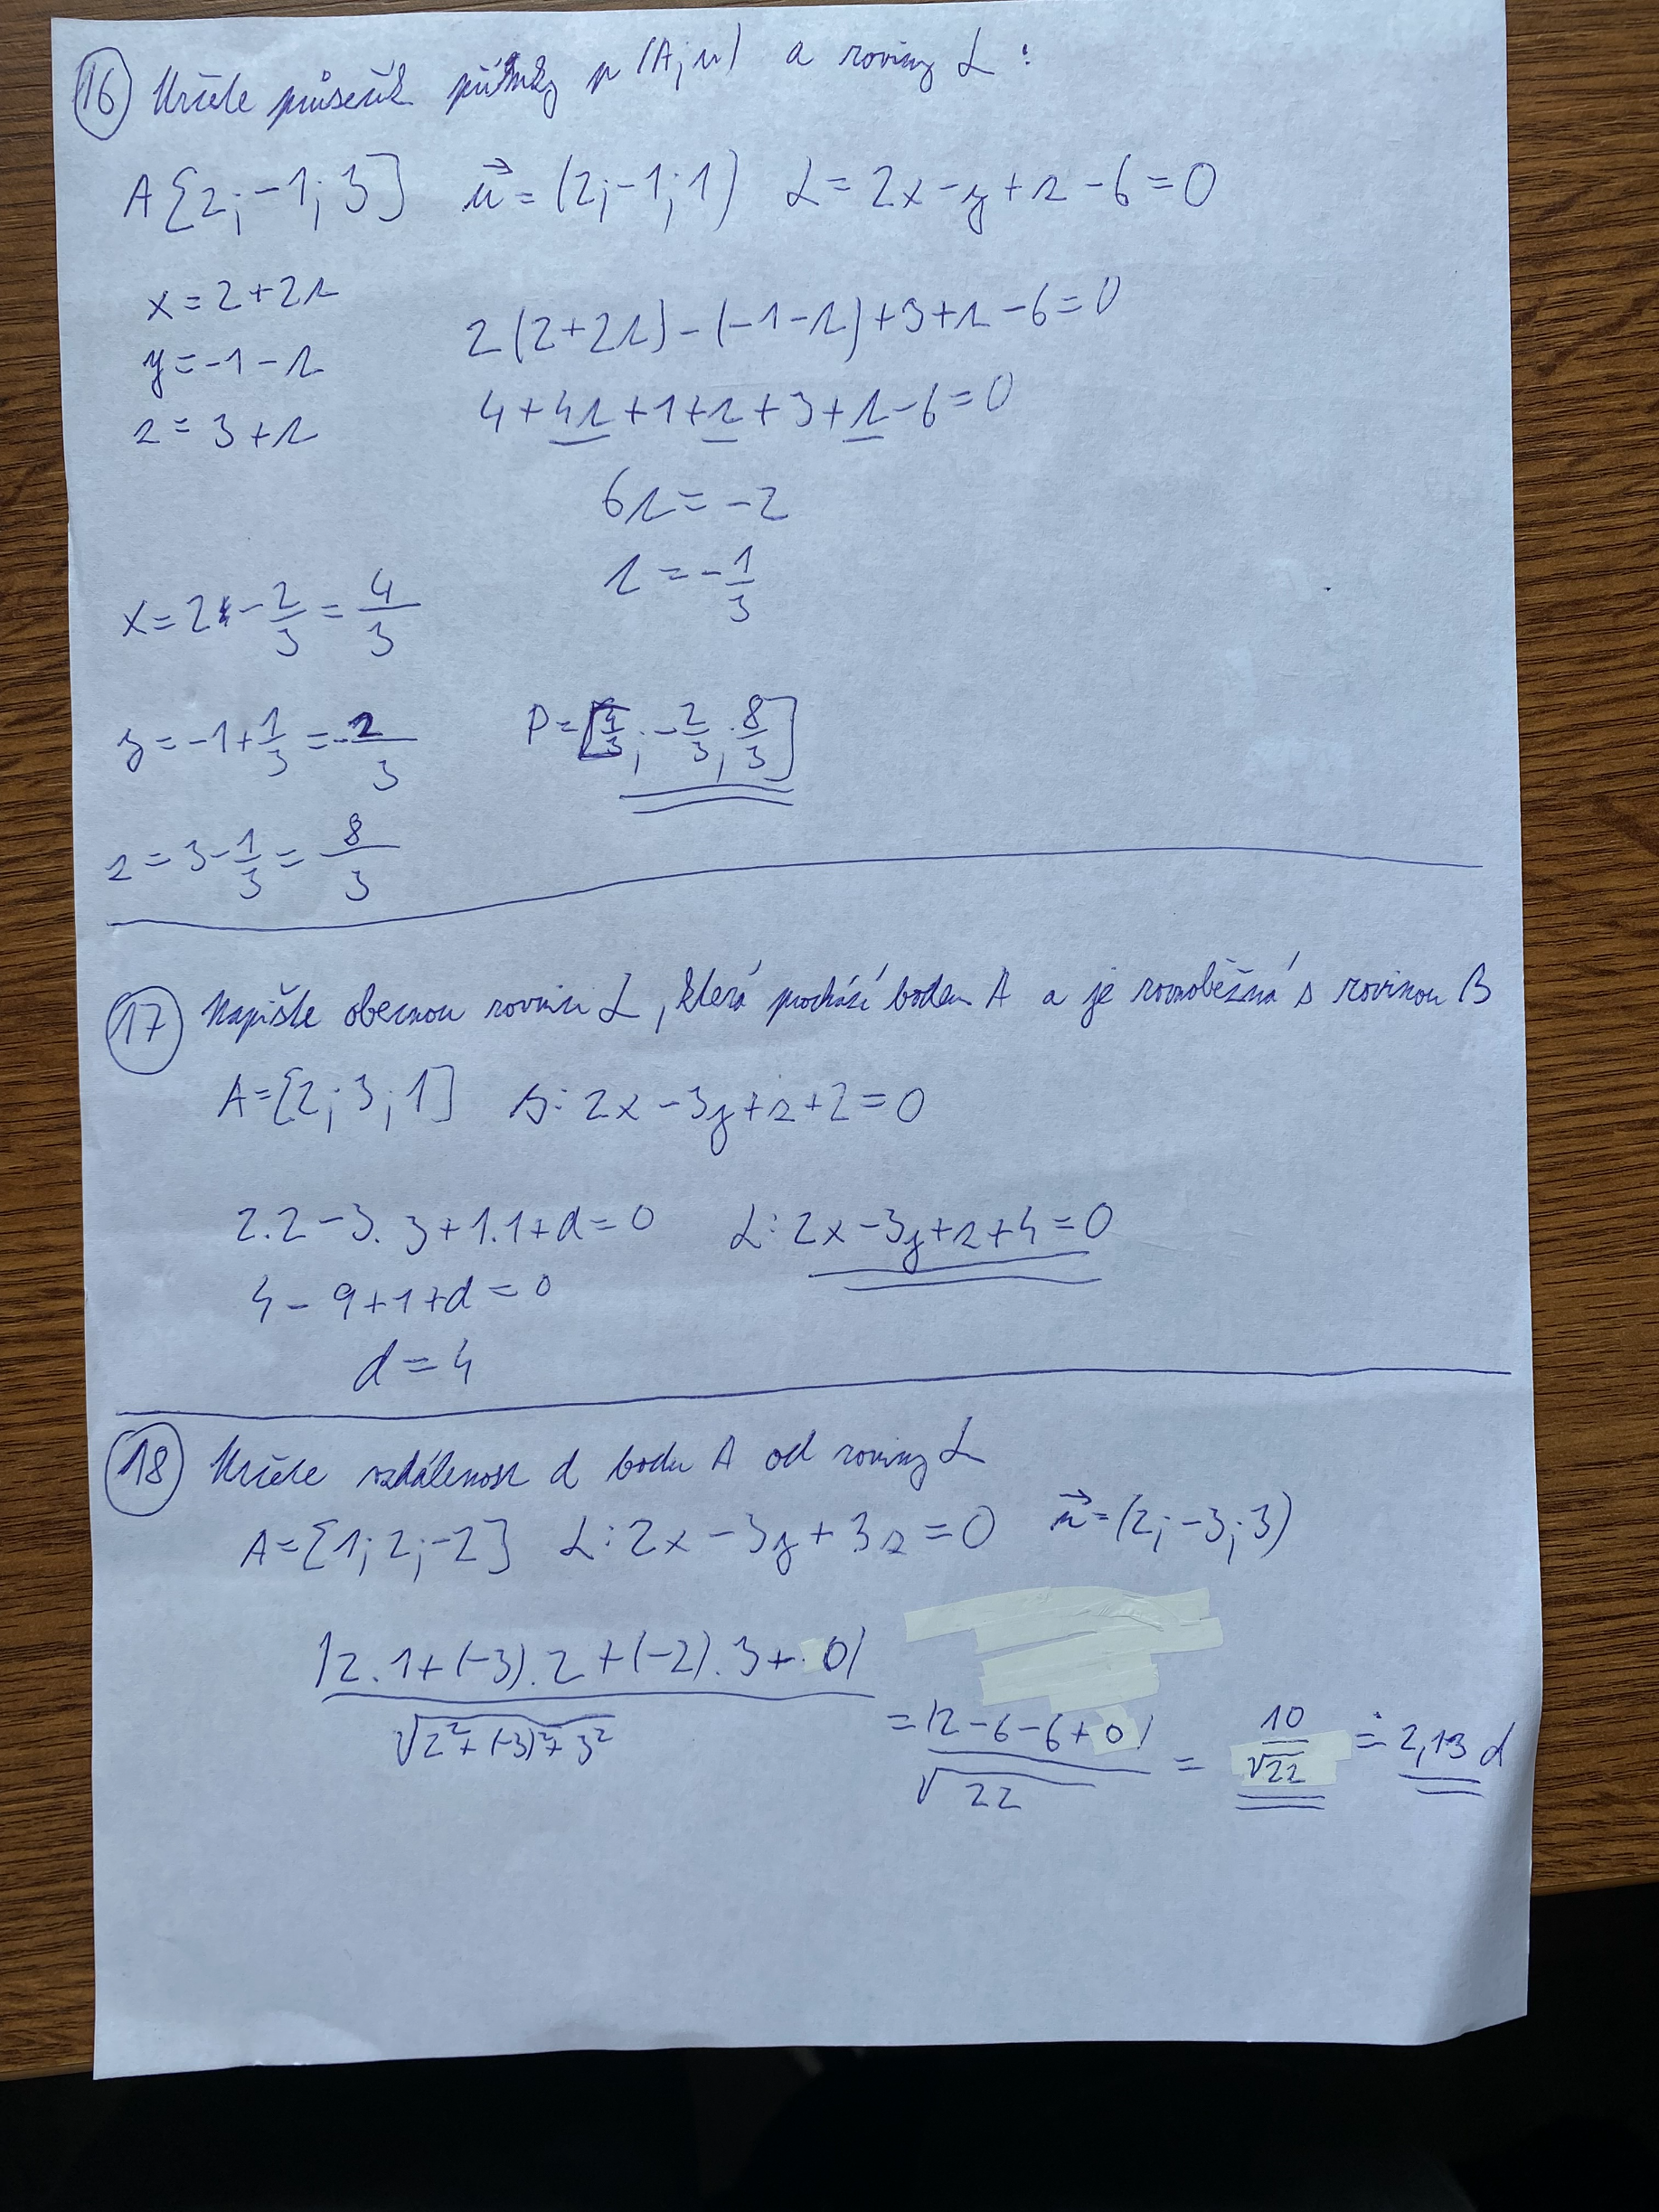 16 Určete průsečík přímky p (A; u) a roviny L :
A [2; -1; 3] u⃗ = (2; -1; 1) L = 2x - y + z - 6 = 0
x = 2 + 2t
y = -1 - t
z = 3 + t
2(2+2t) - (-1-t) + 3 + t - 6 = 0
4 + 4t + 1 + t + 3 + t - 6 = 0
6t = -2
t = -1/3
x = 2 - 2/3 = 4/3
y = -1 + 1/3 = -2/3
z = 3 - 1/3 = 8/3
P = [4/3; -2/3; 8/3]
17 Napište obecnou rovnici L, která prochází bodem A a je rovnoběžná s rovinou B
A = [2; 3; 1] B: 2x - 3y + z + 2 = 0
2.2 - 3.3 + 1.1 + d = 0 L: 2x - 3y + z + 4 = 0
4 - 9 + 1 + d = 0
d = 4
18 Určete vzdálenost d bodu A od roviny L
A = [1; 2; -2] L: 2x - 3y + 3z = 0 n⃗ = (2; -3; 3)
|2.1 + (-3).2 + (-2).3 + 0| / √(2² + (-3)² + 3²) = |2 - 6 - 6 + 0| / √22 = 10/√22 ≐ 2,13 d